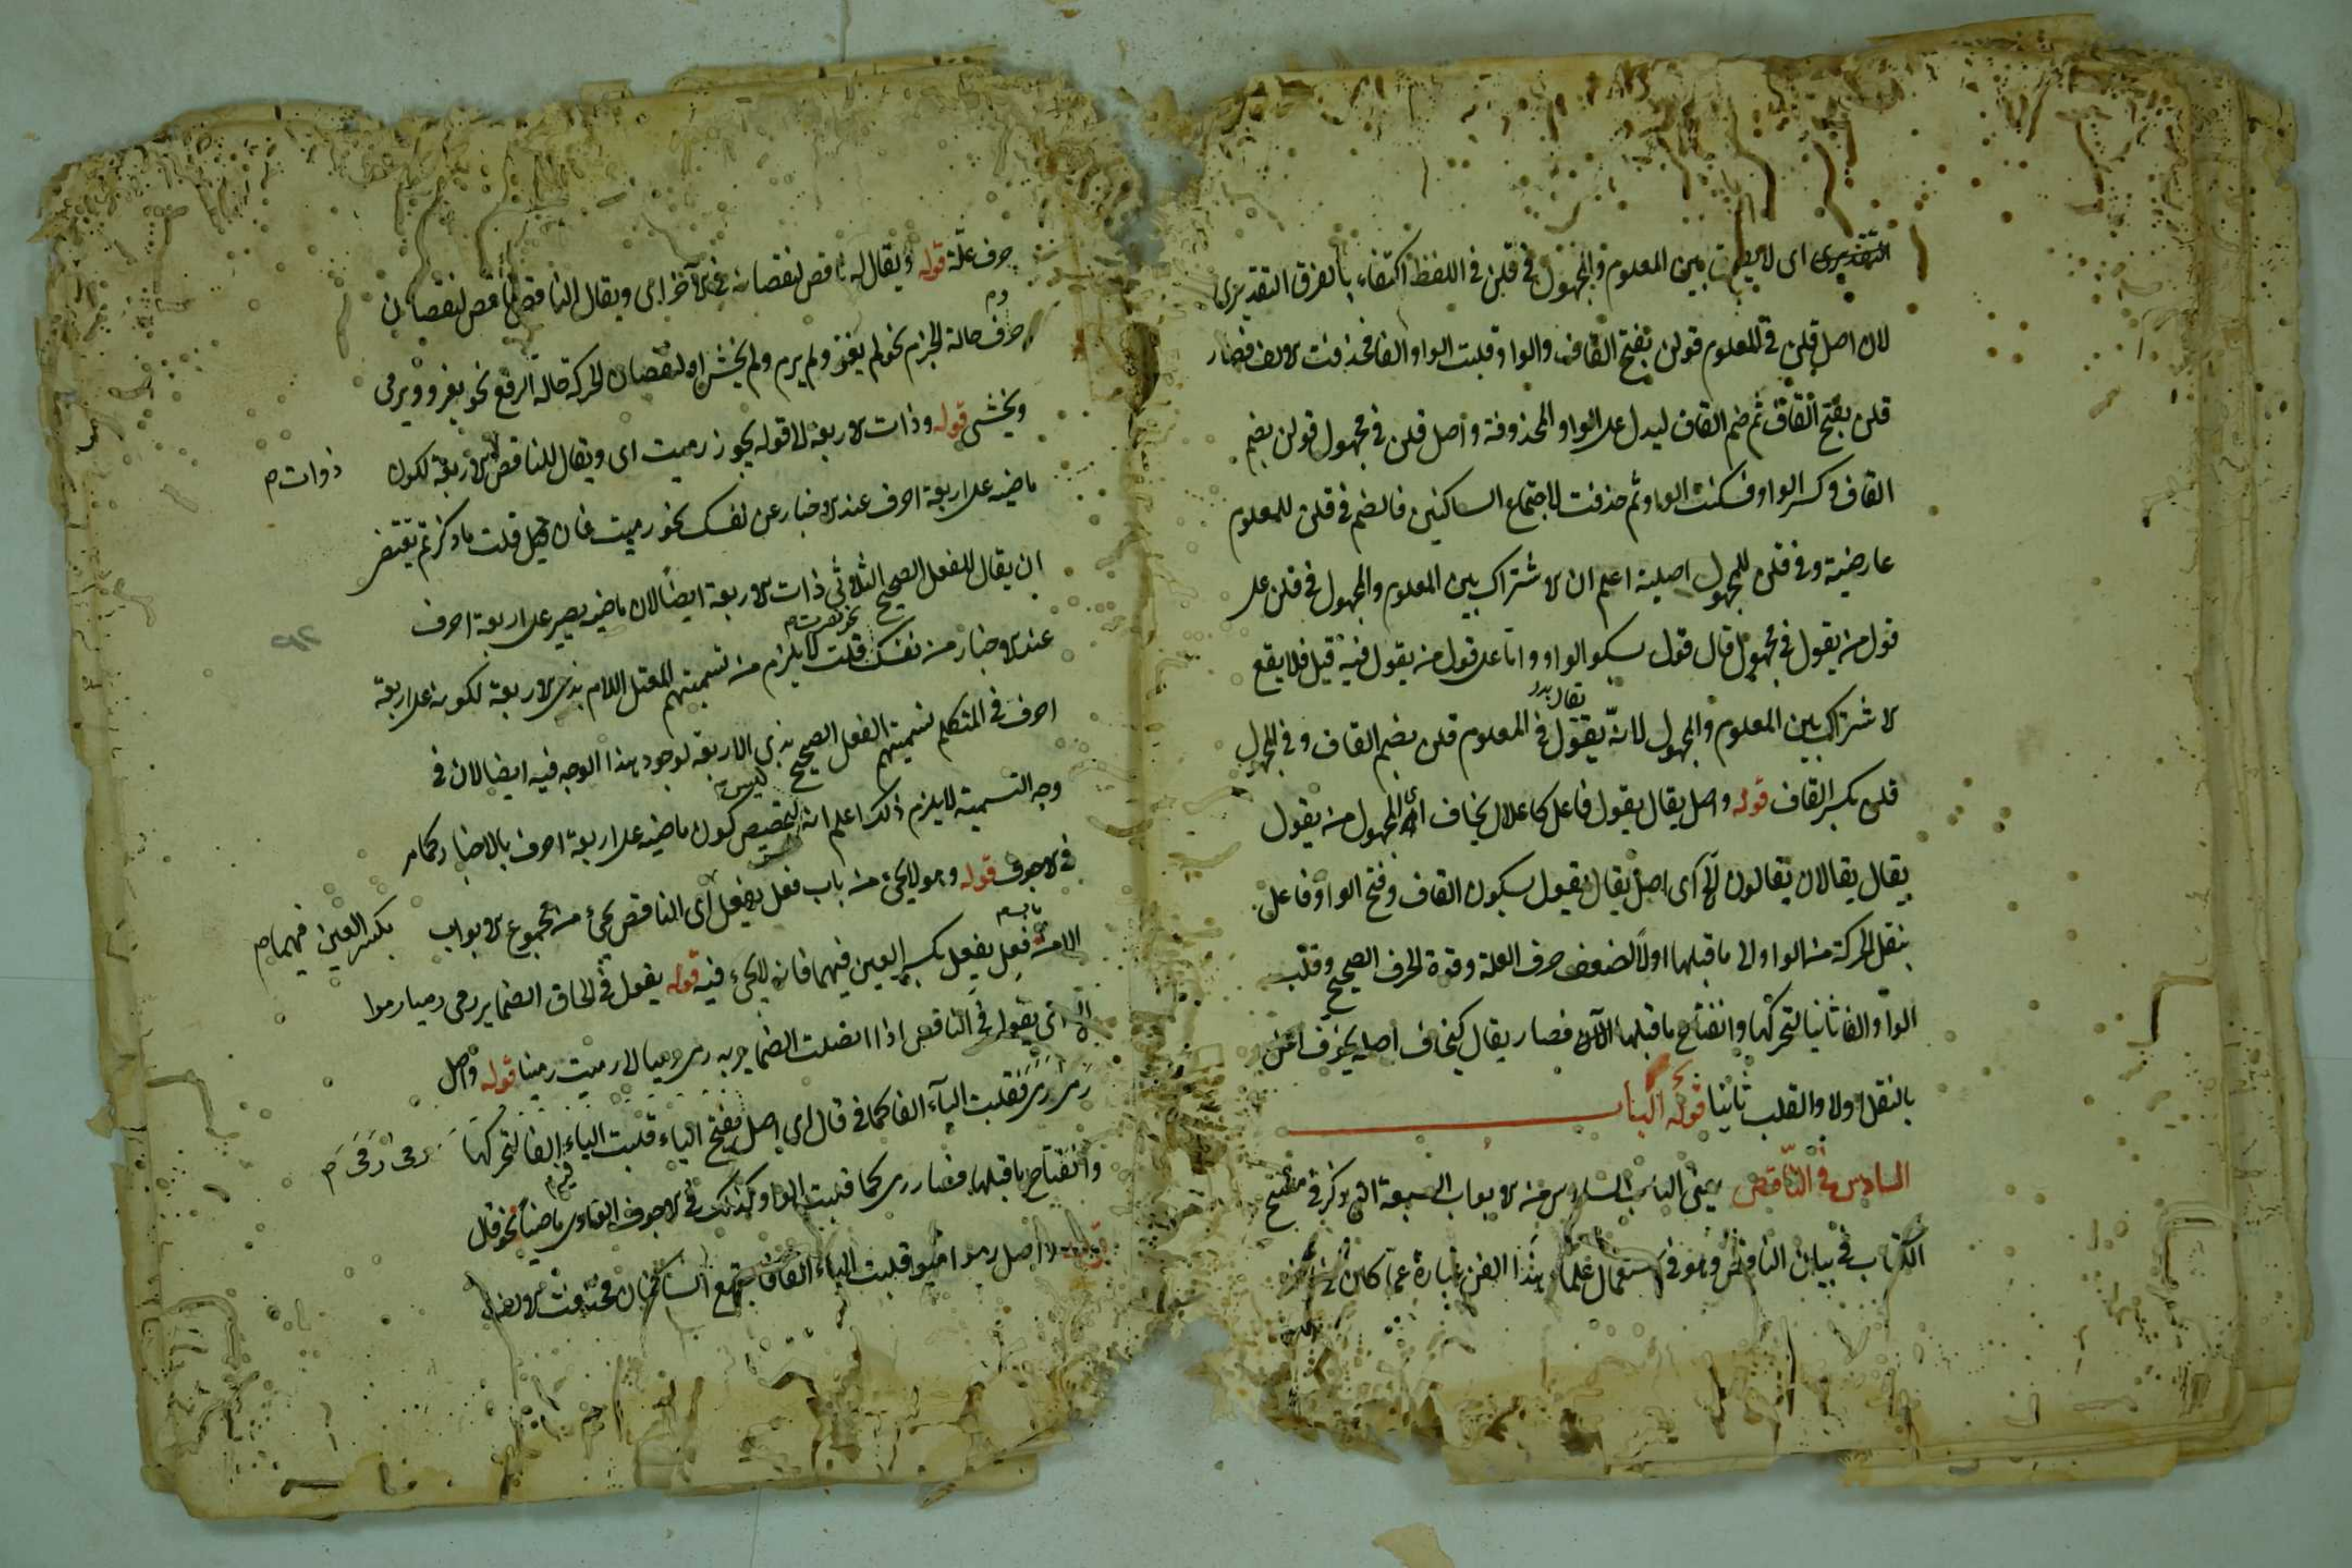 التقديرى اى لا يفرق بين المعلوم والمجهول فى قلن فى اللفظ اكتفاء بالفرق التقديرى
لان اصل قلن فى المعلوم قولن بفتح القاف والواو قلبت الواو الفا فحذفت الالف فصار
قلن بفتح القاف ثم ضم القاف ليدل على الواو المحذوفة واصل قلن فى مجهول قولن بضم
القاف وكسر الواو فسكنت الواو ثم حذفت لاجتماع الساكنين فالضم فى قلن للمعلوم
عارضية وفى قلن للمجهول اصلية اعلم ان الاشتراك بين المعلوم والمجهول فى قلن على
قول من يقول فى مجهول قال قول بسكو الواو واما على قول من يقول فيه قيل فلا يقع
الاشتراك بين المعلوم والمجهول لانه يقول فى المعلوم قلن بضم القاف وفى المجهول
يقال بدل
قلن بكسر القاف قوله واصل يقال يقول فاعل كاعلال يخاف اى المجهول من يقول
يقال يقالان يقالون الخ اى اصل يقال يقول بسكون القاف وفتح الواو فاعل
بنقل الحركة من الواو الى ما قبلها اولا لضعف حرف العلة وقوة الحرف الصحيح وقلب
الواو الفا ثانيا لتحركها وانفتاح ما قبلها الآن فصار يقال كيخاف اصله يخوف اعل
بالنقل اولا والقلب ثانيا قوله الباب
السادس فى الناقص يعنى الباب السادس من الابواب السبعة التى ذكر فى مفتتح
الكتاب فى بيان الناقص وهو فى استعمال علماء هذا الفن عبارة عما كان فى آخره
حرف علة قوله ويقال له ناقص لنقصانه فى الآخر اى ويقال الناقص ناقص لنقصان
حرف حالة الجزم نحو لم يغز ولم يرم ولم يخش او لنقصان الحركة حالة الرفع نحو يغزو ويرمى
ويخشى قوله وذات الاربعة الى قوله يجوز رميت اى ويقال للناقص الاربعة لكون
ذوات م
ماضيه على اربعة احرف عند الاخبار عن نفسك نحو رميت فان قيل قلت ما ذكرتم يقتضى
ان يقال للفعل الصحيح الثلاثى ذات الاربعة ايضا لان ماضيه يصير على اربعة احرف
نحو نصرت م
عند الاخبار من نفسك قلت لا يلزم من تسميتهم المعتل اللام بذى الاربعة لكونه على اربعة
احرف فى المتكلم تسميتهم الفعل الصحيح بذى الاربعة لوجود هذا الوجه فيه ايضا لان فى
وجه التسمية لا يلزم ذلك اعلم ان تخصيص كون ماضيه على اربعة احرف بالاخبار كما مر
فى الاجوف قوله وهو لا يجئ من باب فعل يفعل اى الناقص يجئ من مجموع الابواب
بكسر العين فيهما م
الا من فعل يفعل بكسر العين فيهما فانه لا يجئ فيه قوله يقول فى الحاق الضماير رمى رميا رموا
الخ اى يقول فى الناقص اذا اتصلت الضماير به رمى رميا الى رميت رمينا قوله واصل
رمى رمى فقلبت الياء الفا كما فى قال اى اصل بفتح الياء قلبت الياء الفا لتحركها
رمى رمى م
وانفتاح ما قبلها فصار رمى كما قلبت الواو كذلك فى الاجوف الواوى ماضيا نحو قال
اصل رموا رميوا قلبت الياء الفا فاجتمع الساكنان فحذفت الالف